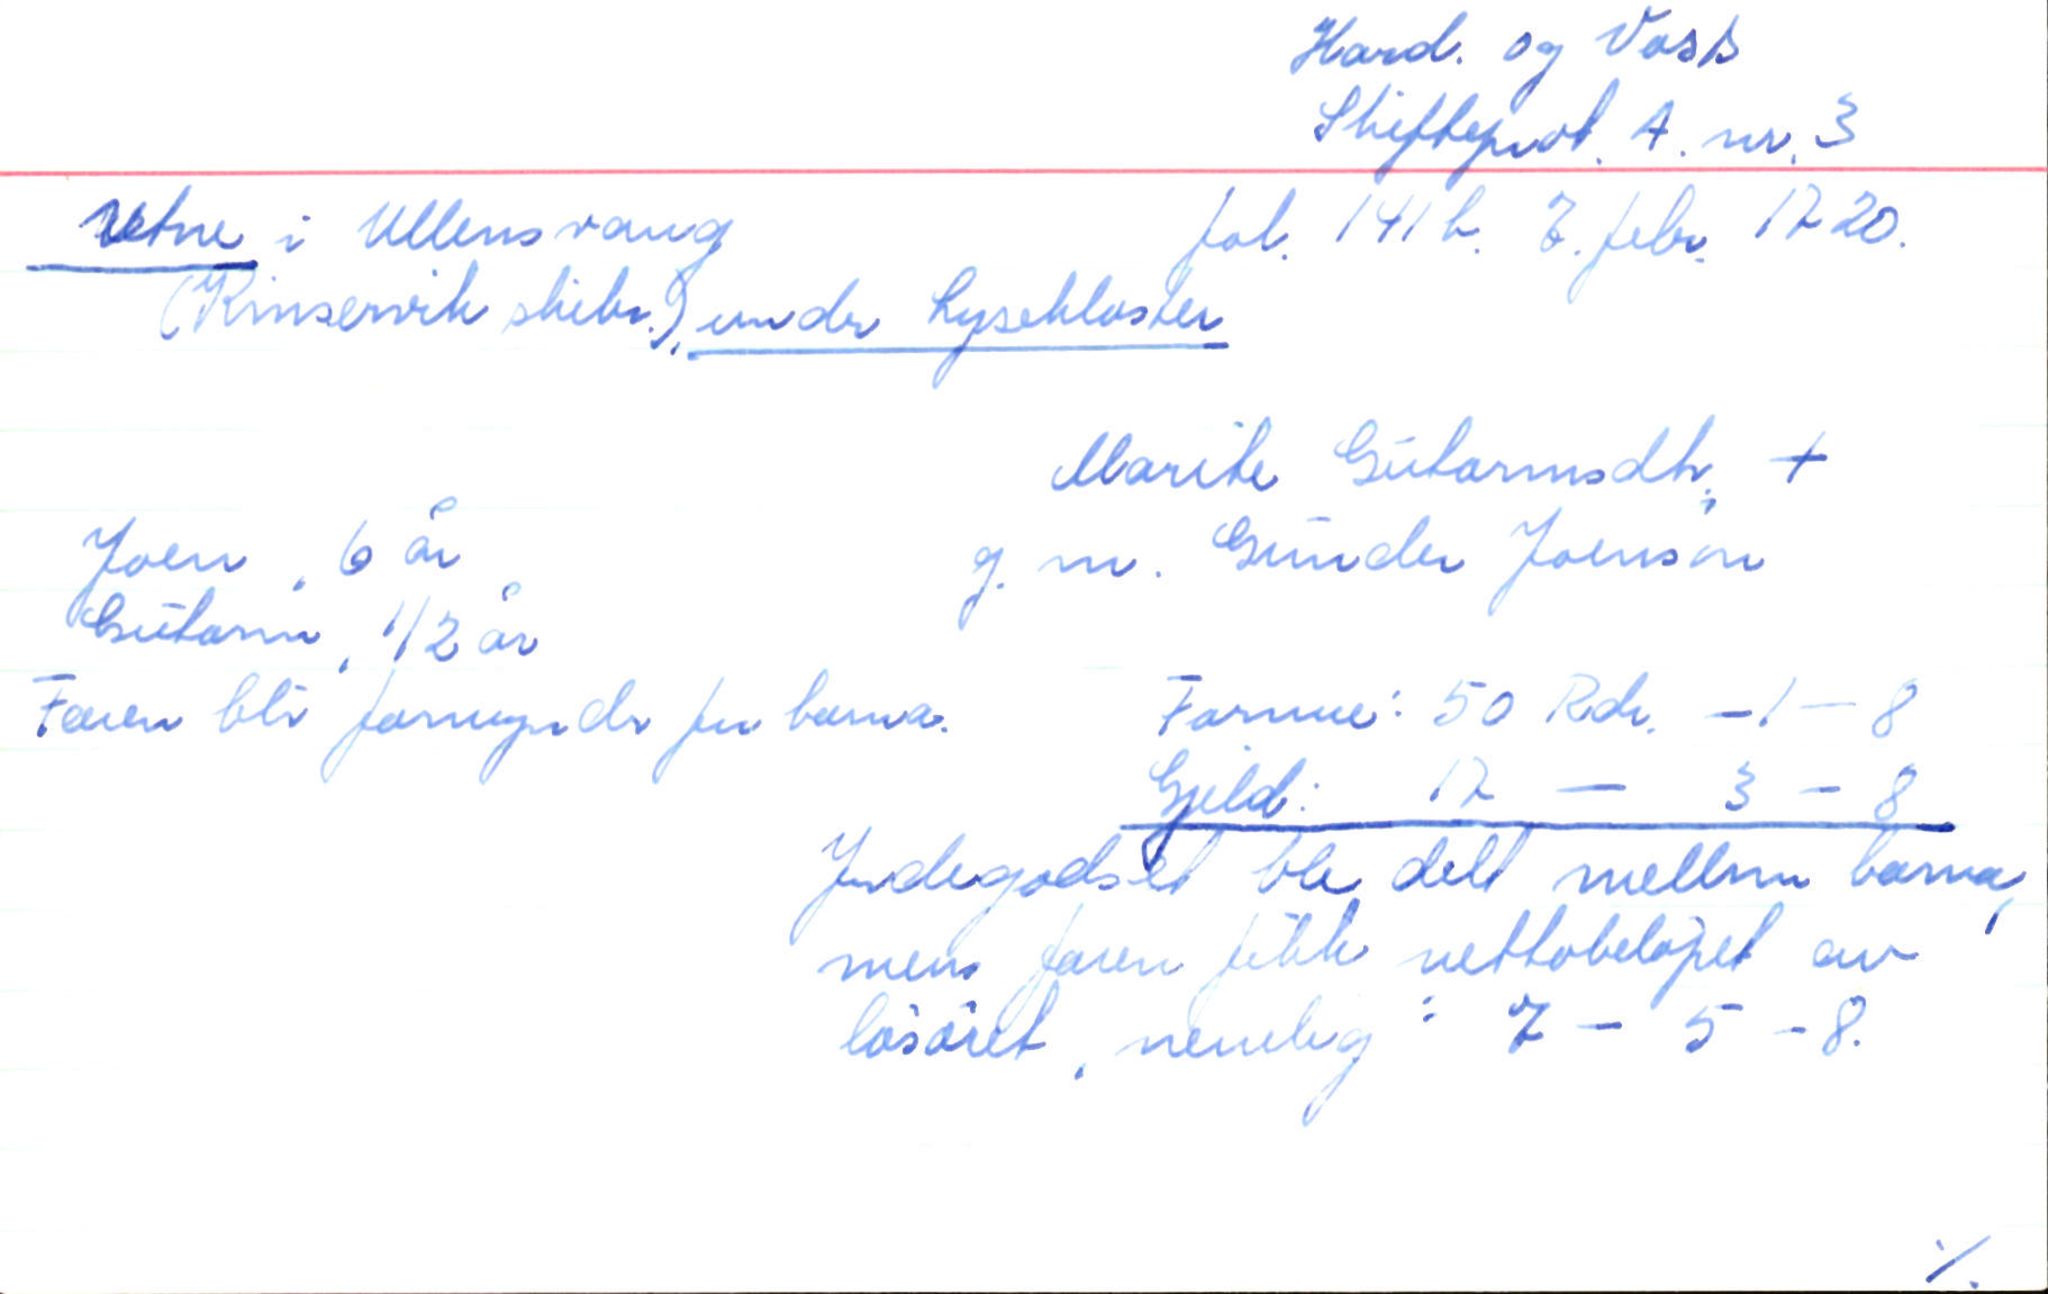 Hard. og Voss
Skifteprot. A. nr. 3
Utne i Ullensvang fol. 141 b. 7. febr. 1720.
(Kinservik skibr.), under Lysekloster
Marite Gutormsdtr. +
Joen, 6 år g. m. Gunder Joensön
Gutorm, 1/2 år
Faren blir formynder for barna. Formue: 50 Rdr. - 1 - 8
Gjeld: 17 - 3 - 8
Jordegodset ble delt mellom barna,
mens faren fikk nettobelöpet av
lösöret, nemlig: 7 - 5 - 8.
./.